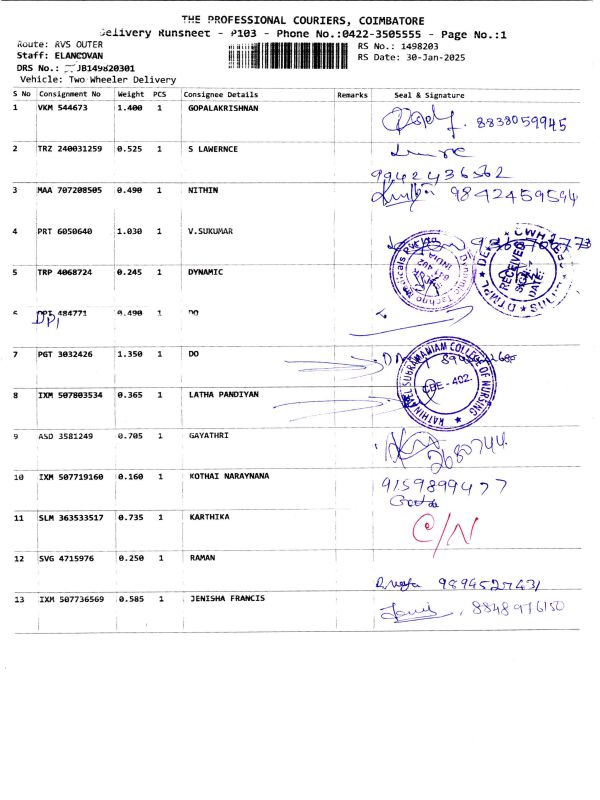 THE PROFESSIONAL COURIERS, COIMBATORE
Delivery Runsheet - P103 - Phone No.:0422-3505555 - Page No.:1
Route: RVS OUTER
RS No.: 1498203
Staff: ELANGOVAN
RS Date: 30-Jan-2025
DRS No.: JB149820301
Vehicle: Two Wheeler Delivery
S No Consignment No Weight PCS Consignee Details Remarks Seal & Signature
1 VKM 544673 1.400 1 GOPALAKRISHNAN 8838059945
2 TRZ 240031259 0.525 1 S LAWERNCE
9942436562
3 MAA 707208505 0.490 1 NITHIN 9842459594
4 PRT 6050640 1.030 1 V.SUKUMAR
RECEIVED
SIGN
DATE:
5 TRP 4068724 0.245 1 DYNAMIC
6 DPI 484771 0.490 1 DO
DPI
7 PGT 3032426 1.350 1 DO
SUBRAMANIAM COLLEGE OF NURSING
CBE - 402.
8 IXM 507803534 0.365 1 LATHA PANDIYAN
9 ASD 3581249 0.705 1 GAYATHRI
2680744
10 IXM 507719160 0.160 1 KOTHAI NARAYNANA 9159899477
11 SLM 363533517 0.735 1 KARTHIKA C/N
12 SVG 4715976 0.250 1 RAMAN
13 IXM 507736569 0.585 1 JENISHA FRANCIS 8848976150